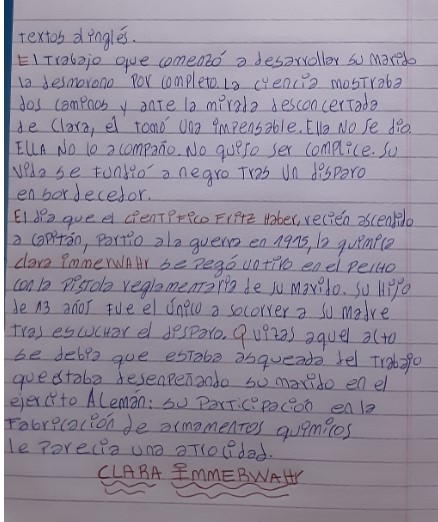 textos d inglés.
El trabajo que comenzó a desarrollar su marido
la desmorono por completo. La ciencia mostraba
dos caminos y ante la mirada desconcertada
de Clara, el tomó uno impensable. Ella No se dio.
ELLA No lo acompaño. No quiso ser complice. Su
vida se fundió a negro tras un disparo
ensordecedor.
El dia que el cientifico Fritz Haber, recién ascendido
a capitán, partio a la guerra en 1915, la quimica
clara immerwahr se pegó un tiro en el pecho
con la pistola reglamentaria de su marido. su Hijo
de 13 años fue el único a socorrer a su madre
tras escuchar el disparo. Quizas aquel acto
se debia que estaba asqueada del trabajo
que estaba desenpeñando su marido en el
ejercito Alemán: su Participacion en la
Fabricación de armamentos quimicos
le Parecia una atrocidad.
CLARA IMMERWAHR